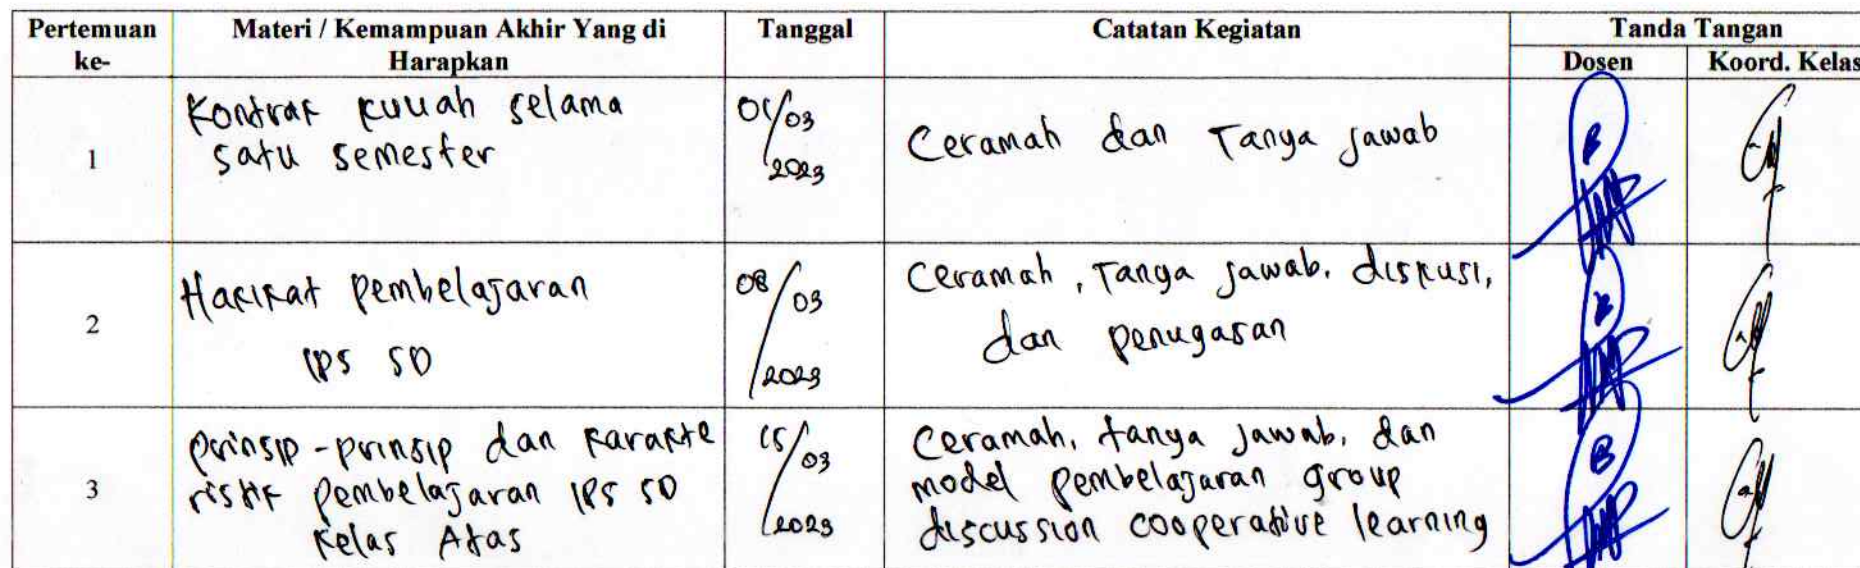 Pertemuan ke-
Materi / Kemampuan Akhir Yang di Harapkan
Tanggal
Catatan Kegiatan
Tanda Tangan
Dosen
Koord. Kelas
1
Kontrak kuliah selama
satu semester
01/03
2023
Ceramah dan Tanya jawab
2
Hakikat pembelajaran
IPS SD
08/03
2023
Ceramah, Tanya jawab, diskusi,
dan penugasan
3
prinsip-prinsip dan karakte
ristik pembelajaran IPS SD
kelas Atas
15/03
2023
Ceramah, tanya jawab, dan
model pembelajaran group
discussion cooperative learning